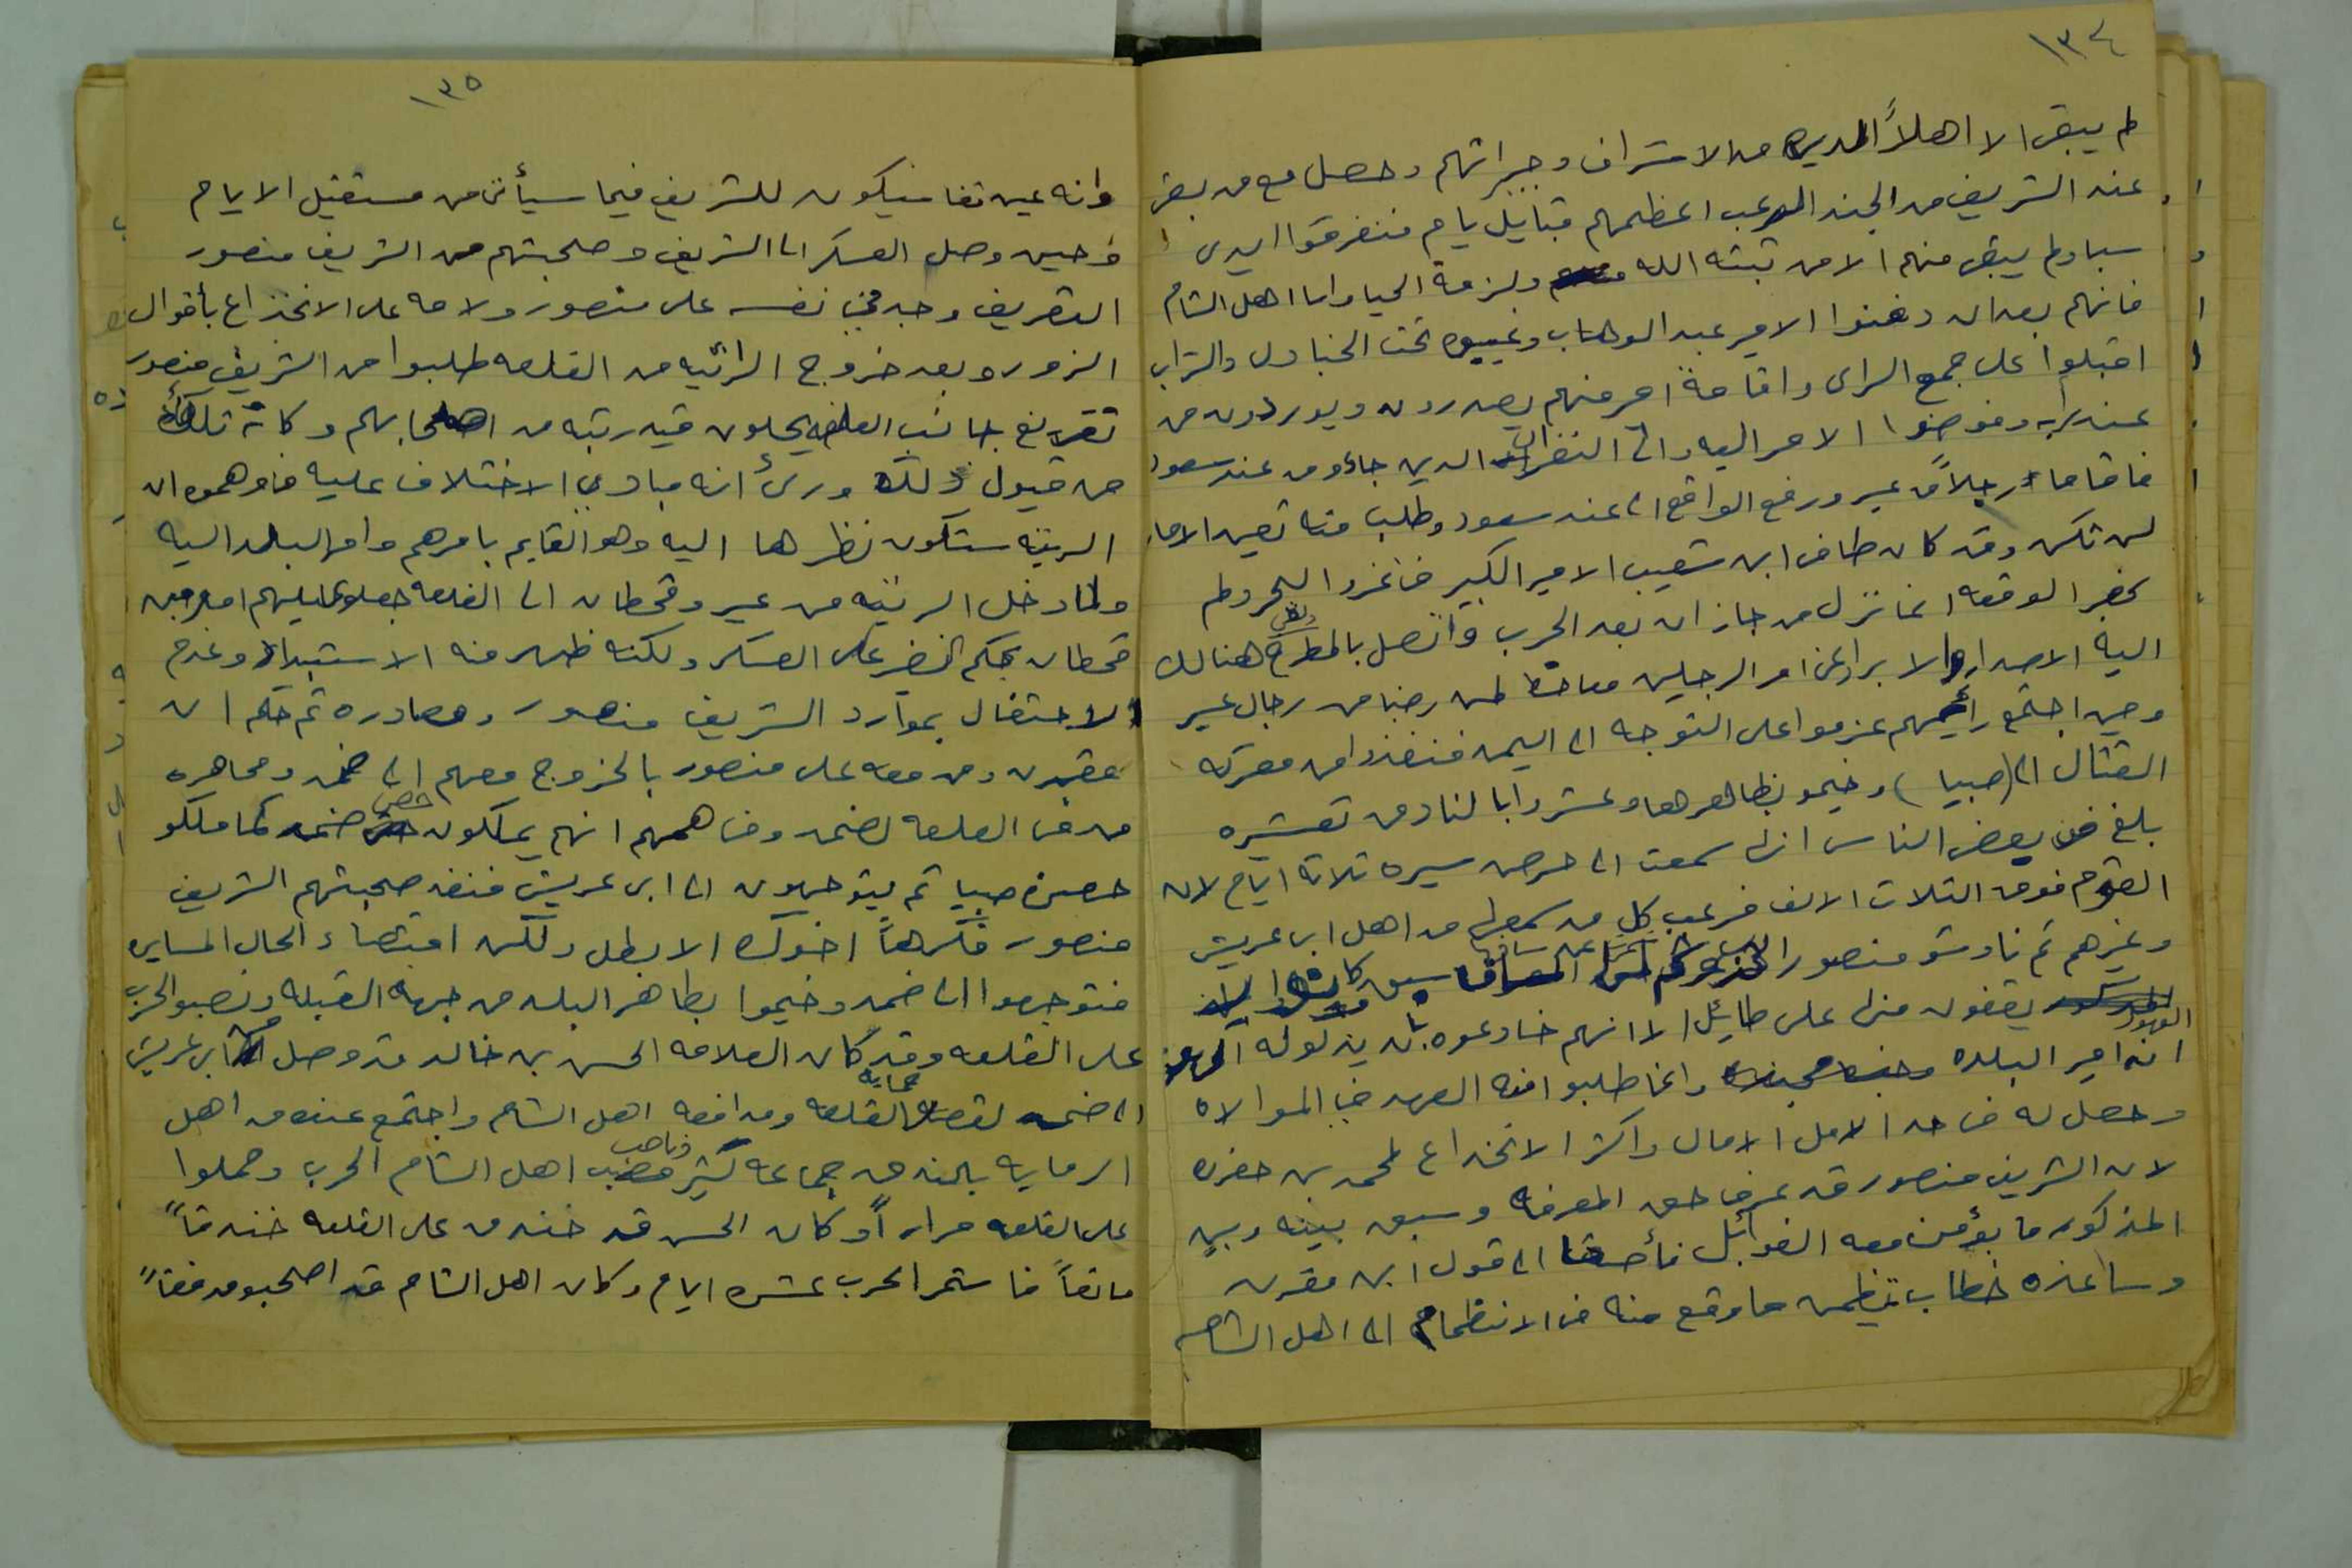 ١٣٤
لم يبق الا اهل المدينه من الاشراف وجيرانهم وحصل مع من بقى
عند الشريف من الجند الرعب اعظمهم قبايل يام فتفرقوا ايدي
سبا ولم يبق منهم الا من ثبته الله ولزمة الحيا واما اهل الشام
فانهم بعد ان دفنوا الامير عبد الوهاب وغيبوه تحت الجنادل والتراب
اقبلوا على جمع الراى واقامة امر منهم يصدرون ويوردون من
عند رايه وفوضوا الامر اليه والى النفران الذين جاؤو من عند سعود
فاقاما رجلاً من عسير ورفع الواقع الى عند سعود وطلب منه تعين الاماره
لمن تكن وقد كان طاف ابن شعيب الامير الكبير في غزو البحر ولم
يحضر الوقعه انما نزل من جازان بعد الحرب واتصل بالمطرح والقى هنالك
اليه الاصدار والا يراد عن امر الرجلين لمن رضا من رجال عسير
وحين اجتمع رأيهم عزموا على التوجه الى اليمن فنفذوا من معركة
القتال الى (صبيا) وخيمو بظاهرها وعشروا بالنادق تعشيره
بلغ من بعض الناس انها سمعت الى حرض مسيره ثلاثة ايام لان
القوم فوق الثلاث الالف فرعب كل من سمعها من اهل ابى عريش
وغيرهم ثم ناوشو منصور
يقفون منها على طايل الا انهم خادعوه بان يذلو له العهود
انه امير البلده وانما طلبو امنه العهد في الموالاه
وحصل له في حد الامل الامال واكثر الانخداع لمحمد بن
لان الشريف منصور قد عرف حق المعرفه وسبق بينه وبين
المذكور ما يؤمن معه الغوائل الى قول ابن مقرن
وساعده خطاب يتظمن ما وقع منه في الانتظام الى اهل الشام
١٣٥
وانه عين تفا سيكون للشريف فيما سيأتى من مستقبل الايام
وحين وصل العسكر الى الشريف وصحبتهم من الشريف منصور
التعريف وجد في نفسه على منصور ولامه على الانخداع بأقوال
الزور وبعد خروج الراتبه من القلعه طلبوا من الشريف منصور
تفريغ جانب القلعه يجعلون فيه رتبه من اصحابهم وكانه تلكأ
من قبول ذلك ورئ انه مبادي الاختلاف عليه فاوهموه ان
الرتبه ستكون نظرها اليه وهو القايم بامرهم وامر البلد اليه
ولما دخل الرتبه من عسير وقحطان الى القلعه جعلو عليهم امير من
قحطان يحكم النضر على العسكر ولكنه ظهر منه الاستبداد وعدم
الاحتفال بموارد الشريف منصور ومصادره ثم حكم ابن
مقرن ومن معه على منصور بالخروج معهم الى ضمد ومحاصره
من في القلعه لضمد وفاهمهم انهم يملكون حصن ضمد كما ملكو
حصن صبيا ثم يتوجهون الى ابى عريش فنفذ صحبتهم الشريف
منصور مكرهاً اخوك لا بطل ولكن اقتضاء الحال المسايره
فتوجهوا الى ضمد وخيموا بظاهر البلد من جهة القبله ونصبو الحرب
على القلعه وقد كان العلامه الحسن بن خالد قد وصل من ابى عريش
الى ضمد لقصد حماية القلعه ومدافعه اهل الشام واجتمع عنده من اهل
الرمايه بالبندق جماعه كثير وناصب اهل الشام الحرب وحملوا
على القلعه مراراً وكان الحسن قد خندق على القلعه خندقاً
مانعاً فاستمر الحرب عشره ايام وكان اهل الشام قد اصحبو مدفعاً